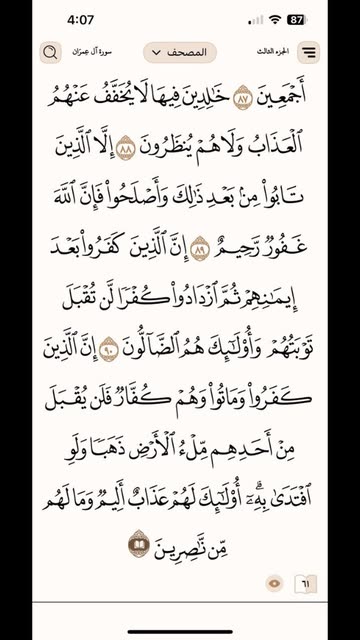 4:07
87
سورة آل عمران
المصحف
الجزء الثالث
أَجْمَعِينَ ٨٧ خَٰلِدِينَ فِيهَا لَا يُخَفَّفُ عَنْهُمُ
ٱلْعَذَابُ وَلَا هُمْ يُنظَرُونَ ٨٨ إِلَّا ٱلَّذِينَ
تَابُوا۟ مِنۢ بَعْدِ ذَٰلِكَ وَأَصْلَحُوا۟ فَإِنَّ ٱللَّهَ
غَفُورٌ رَّحِيمٌ ٨٩ إِنَّ ٱلَّذِينَ كَفَرُوا۟ بَعْدَ
إِيمَٰنِهِمْ ثُمَّ ٱزْدَادُوا۟ كُفْرًا لَّن تُقْبَلَ
تَوْبَتُهُمْ وَأُو۟لَٰٓئِكَ هُمُ ٱلضَّآلُّونَ ٩٠ إِنَّ ٱلَّذِينَ
كَفَرُوا۟ وَمَاتُوا۟ وَهُمْ كُفَّارٌ فَلَن يُقْبَلَ
مِنْ أَحَدِهِم مِّلْءُ ٱلْأَرْضِ ذَهَبًا وَلَوِ
ٱفْتَدَىٰ بِهِۦٓ ۗ أُو۟لَٰٓئِكَ لَهُمْ عَذَابٌ أَلِيمٌ وَمَا لَهُم
مِّن نَّٰصِرِينَ
٦١